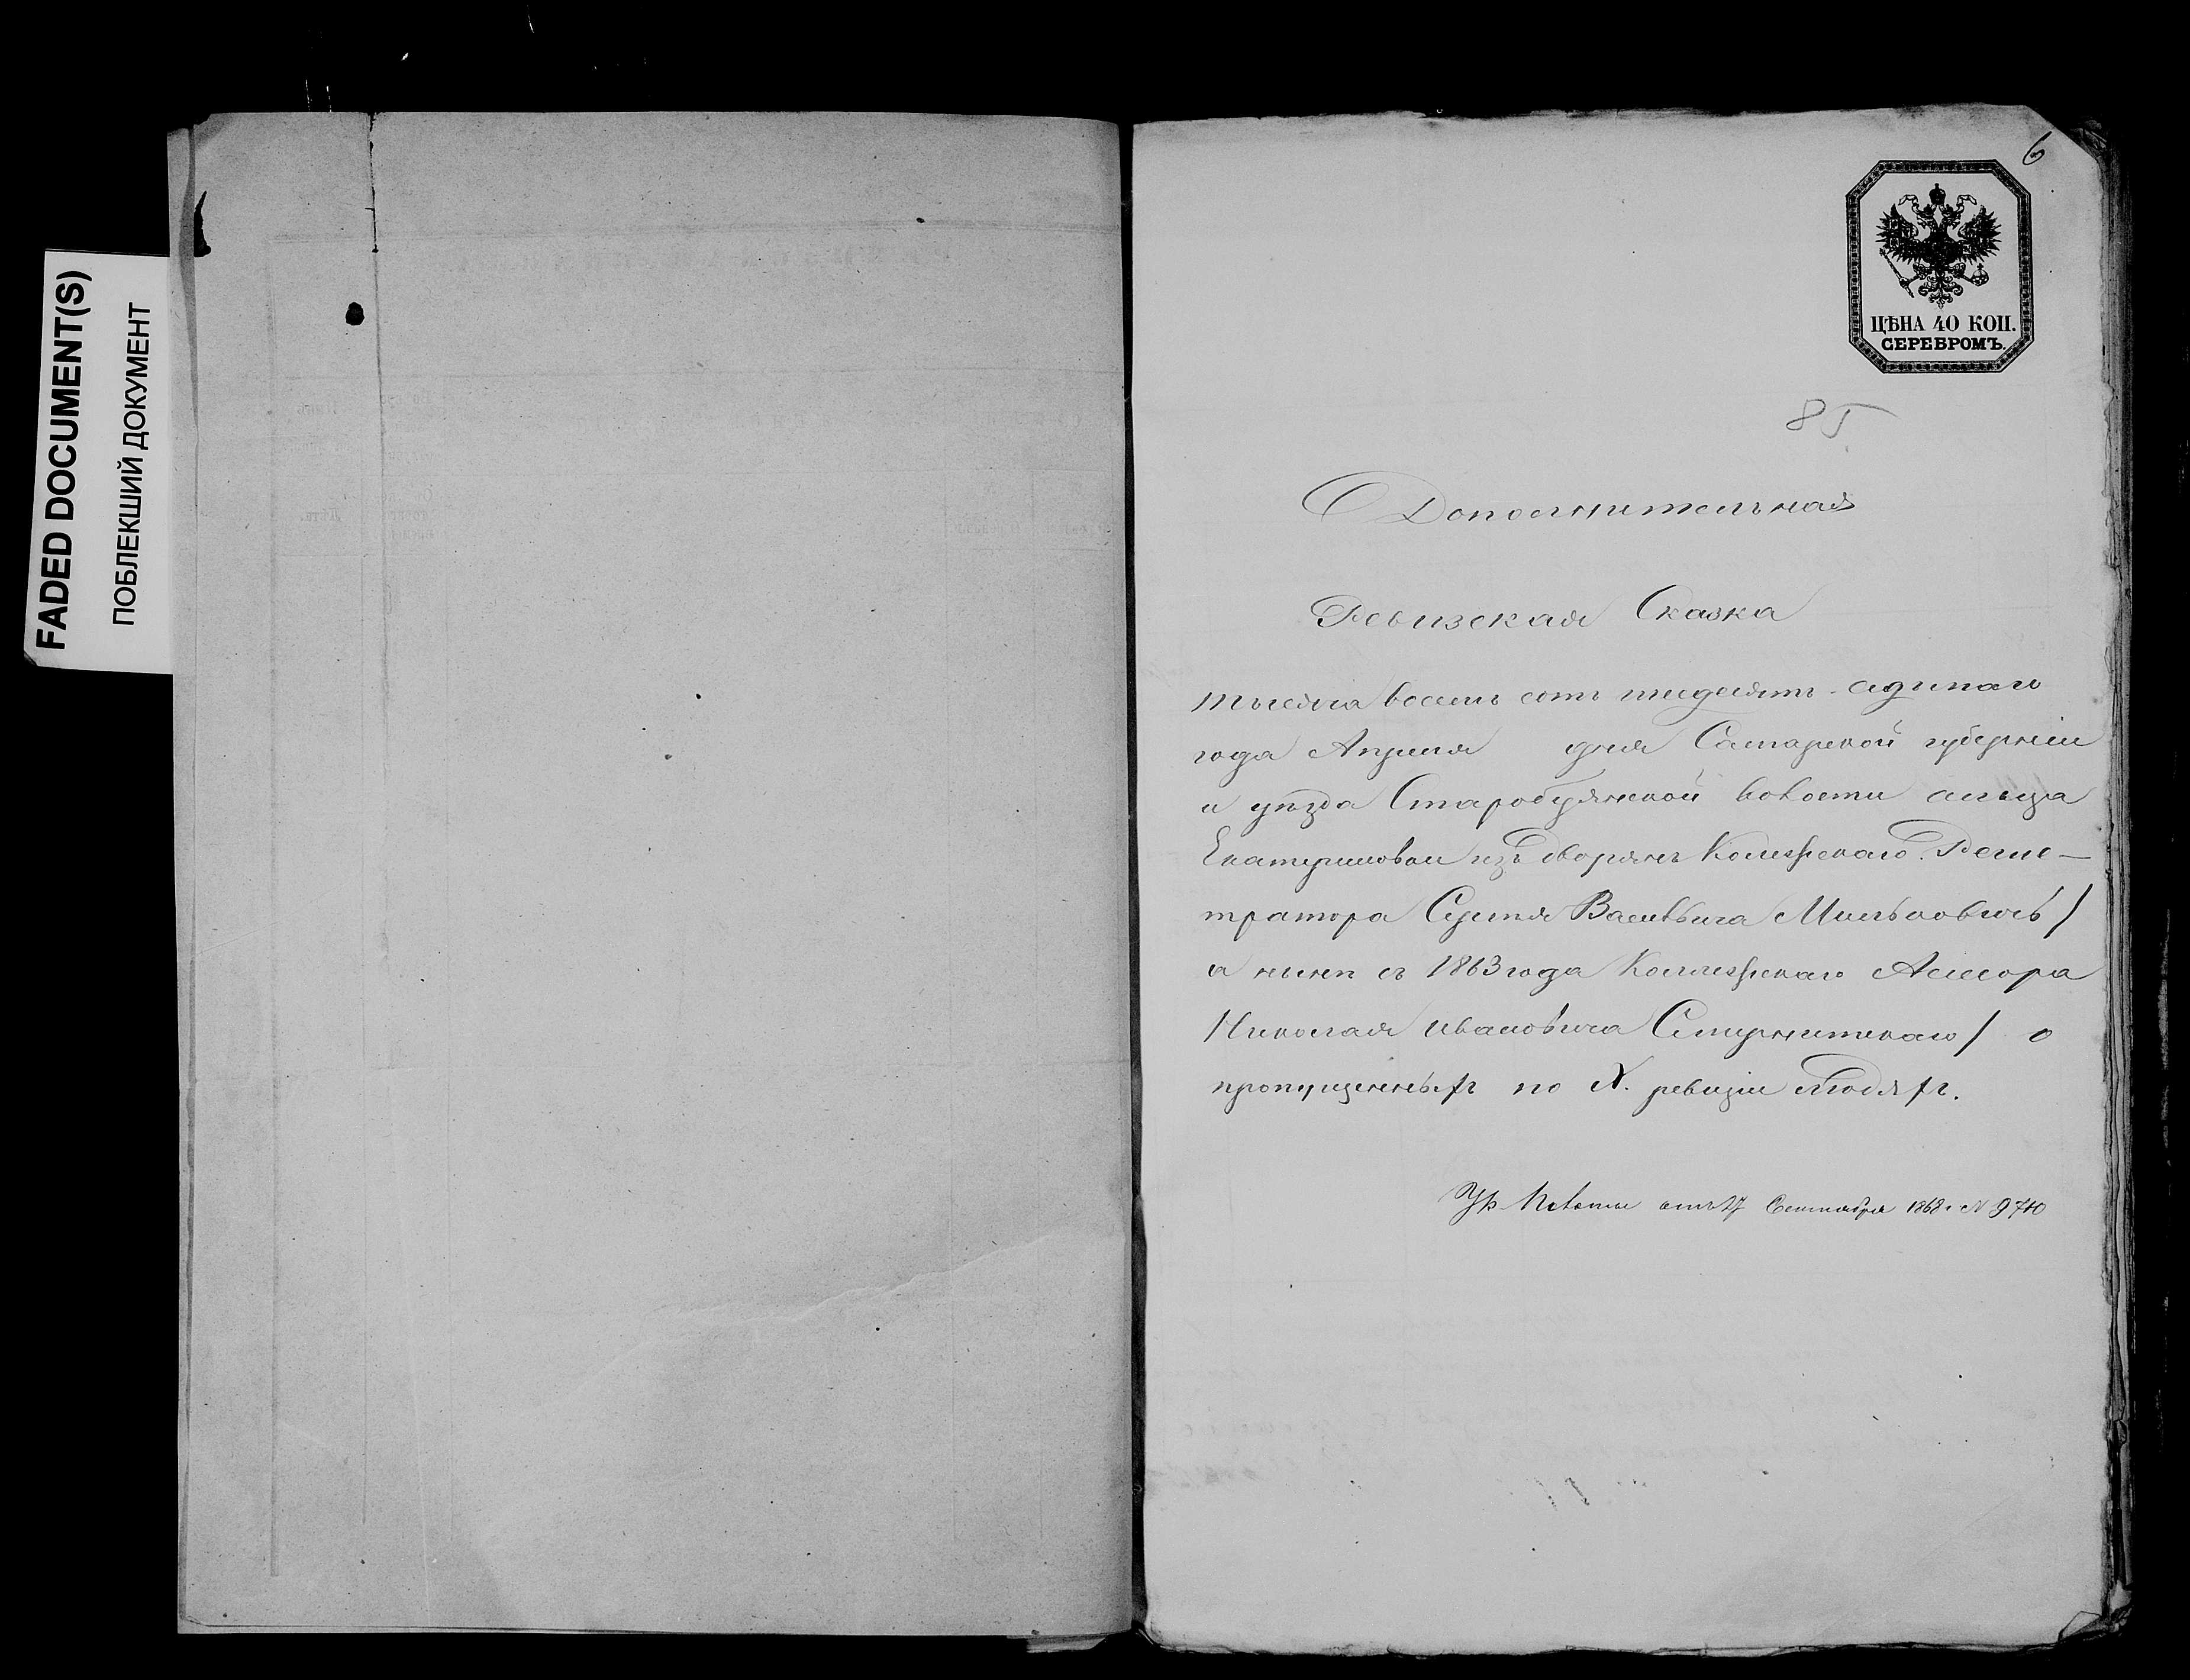 FADED DOCUMENT(S)
ПОБЛЕКШИЙ ДОКУМЕНТ
6
ЦѢНА 40 КОП.
СЕРЕБРОМЪ.
85
Дополнительная
Ревизская Сказка
тысяча восемь сотъ шесдесятъ адинаго
года Апреля дня Самарской губерніи
и уѣзда волости сельца
Екатериновки изъ дворянъ Колежскаго Регис-
тратора Сергея Васильвича /
а нынѣ съ 1863 года Коллежскаго Асесора
Николая Ивановича / о
пропущенныхъ по X. ревизіи людяхъ.
отъ 27 Сентября 1868 г № 9740